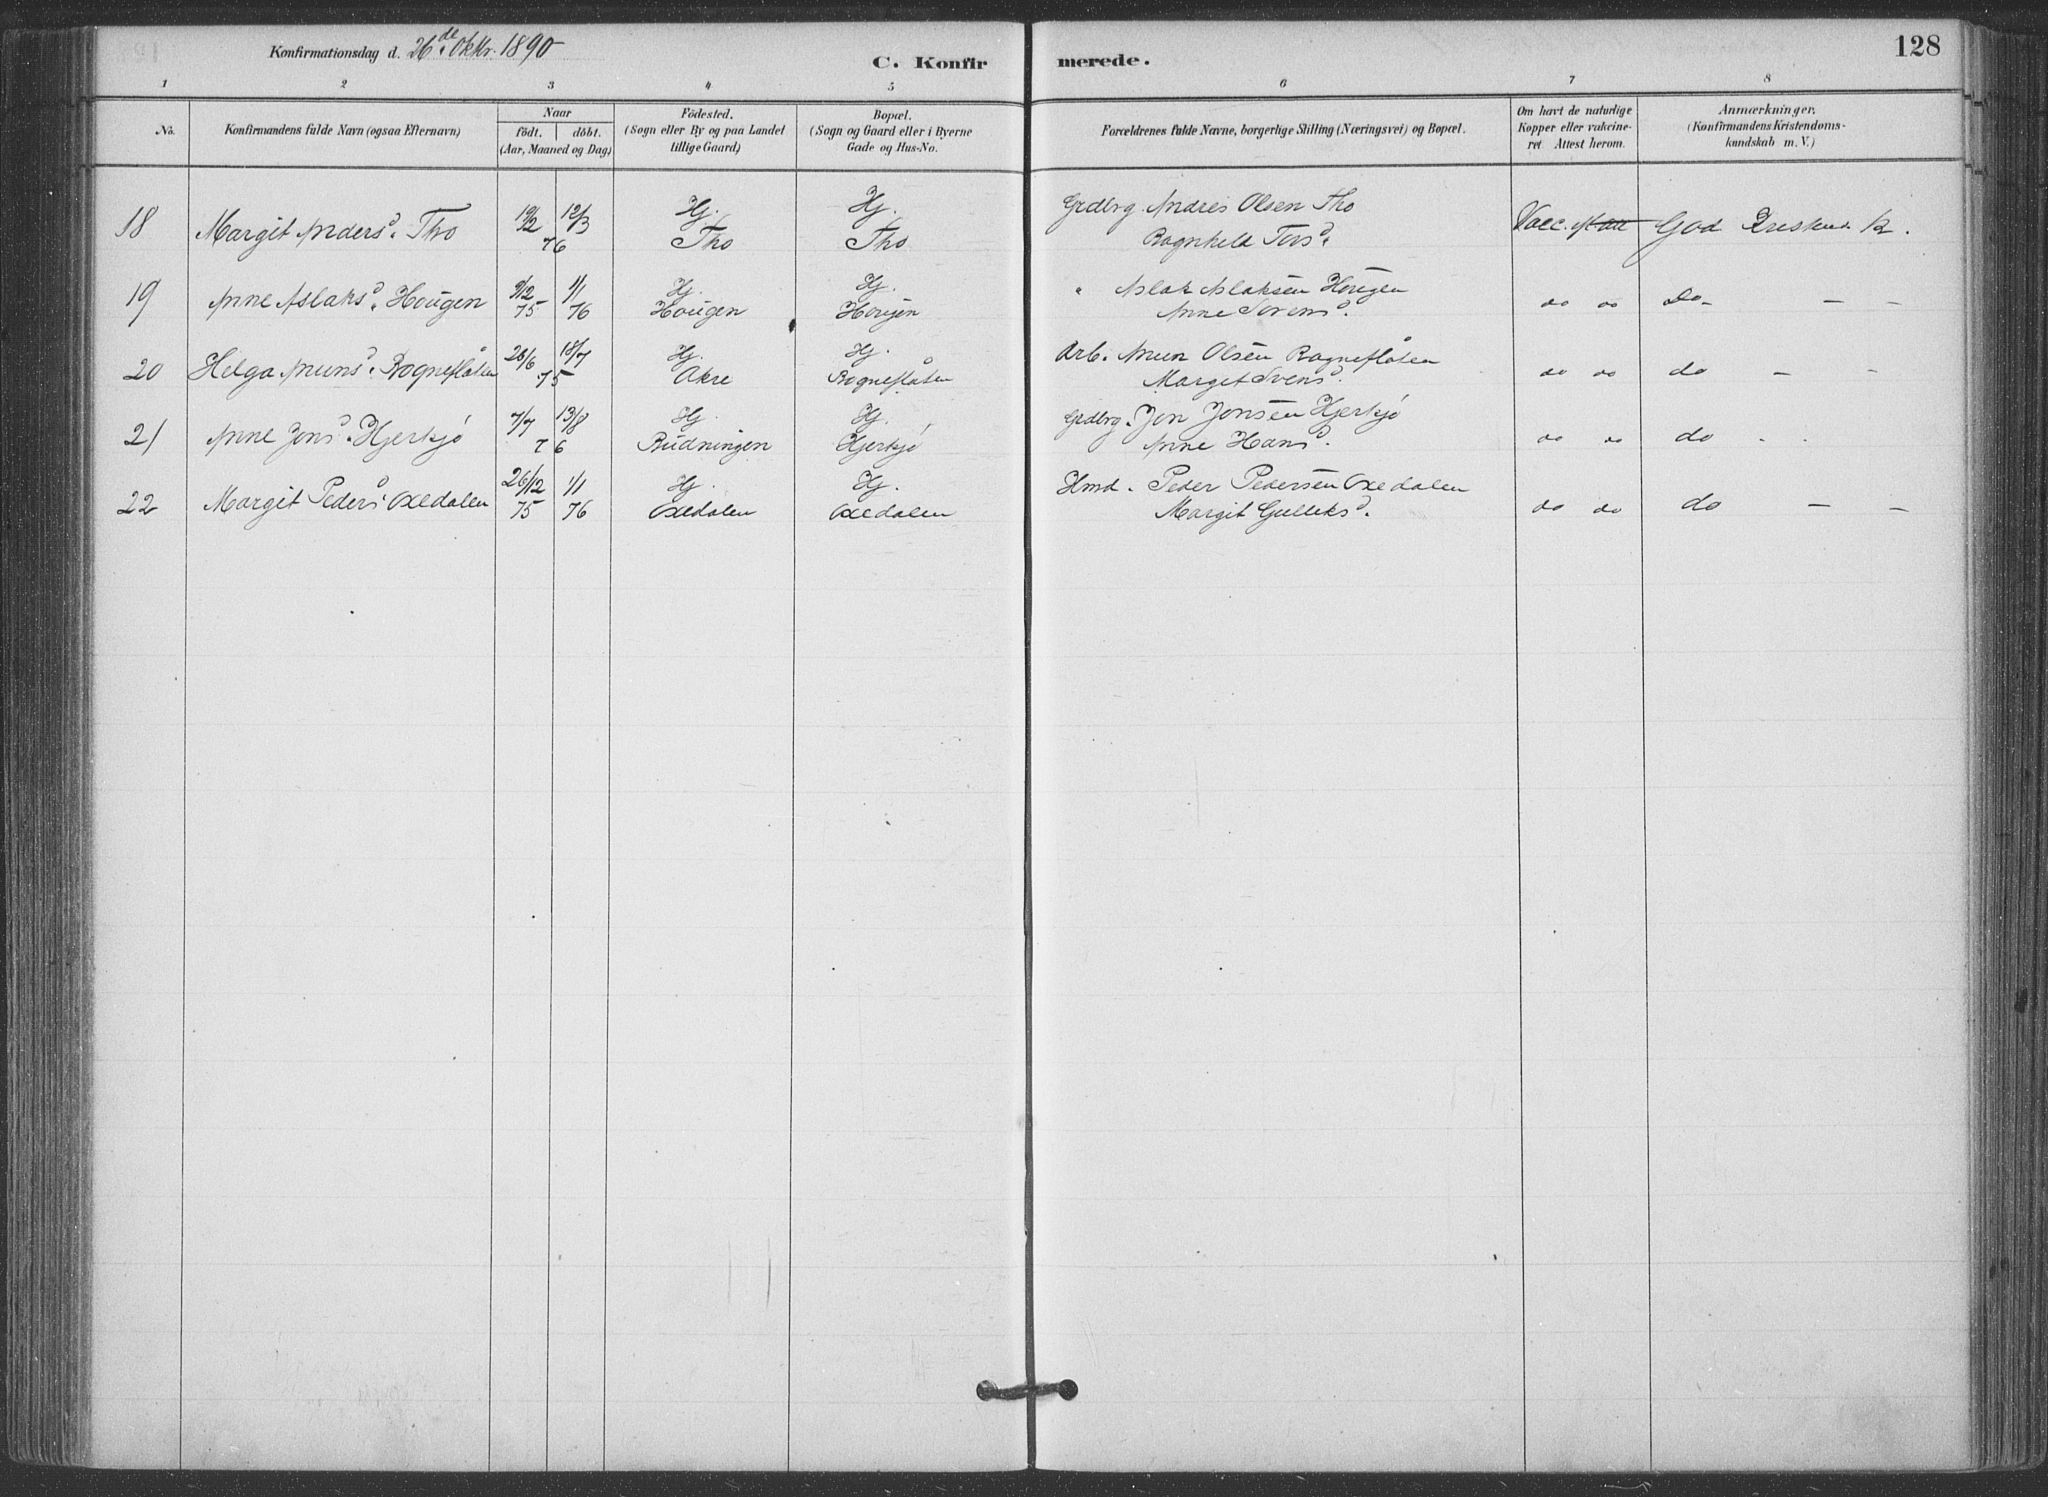 Konfirmationsdag d. 26de Oktbr. 1890
C. Konfirmerede.
128
1 2 3 4 5 6 7 8
No.
Konfirmandens fulde Navn (ogsaa Efternavn)
Naar
födt. döbt.
(Aar, Maaned og Dag)
Födested.
(Sogn eller By og paa Landet
tillige Gaard)
Bopæl.
(Sogn og Gaard eller i Byerne
Gade og Hus-No.
Forældrenes fulde Navne, borgerlige Stilling (Næringsvei) og Bopæl.
Om havt de naturlige
Kopper eller vakcine-
ret Attest herom.
Anmærkninger.
(Konfirmandens Kristendoms-
kundskab m. V.)
18 Margit Andersd. Tho 19/2 12/3 76 Hj. Tho Hj. Tho Grdbrg. Andres Olsen Tho
Ragnhild Torsd. Vacc. God Kristend. K.
19 Anne Aslaksd. Hougen 9/12 75 1/1 76 Hj. Hougen Hj. Hougen " Aslak Aslaksen Hougen
Anne Svensd. do do Do - -
20 Helga Amunsd. Rognefløten 26/6 18/7 75 Hj. Økre Hj. Rognefløten Arb. Amun Olsen Rognefløten
Margit Svensd. do do do - -
21 Anne Jonsd. Hjerkjø 7/7 13/8 76 Hj. Rudningen Hj. Hjerkjø Grdbrg. Jon Jonsen Hjerkjø
Anne Hansd. do do do
22 Margit Pedersd. Oxedalen 26/12 75 1/1 76 Hj. Oxedalen Hj. Oxedalen Hmd. Peder Pedersen Oxedalen
Margit Gulleksd. do do do - -